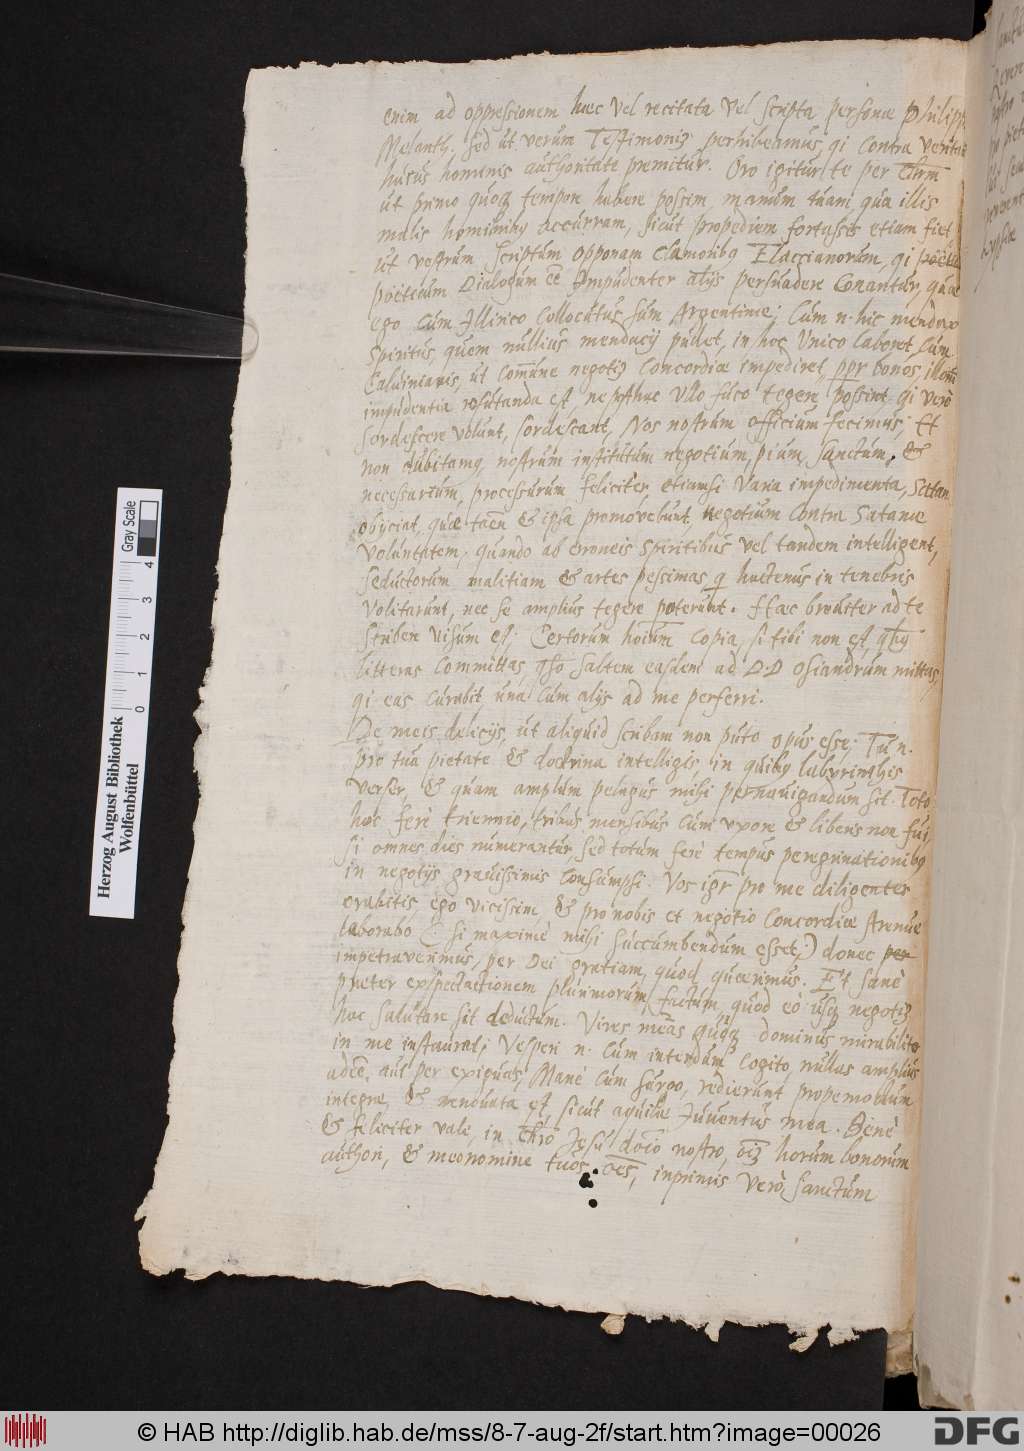 enim ad oppressionem haec vel recitata vel scripta personae Philipp
Melanth. Sed ut verum Testimoniu perhibeamus, qi contra verita
huius hominis authoritate premitur. Oro igitur te per Chrm
ut primo quoq tempore habere possim manum tuam qua illis
malis hominibq accurram, sicut propediem fortassis etiam fiet
ut vestrum scriptum opponam clamoribq Flaccianorum, qi
poëticum Dialogum ee impudenter alijs persuadere conantur, quae
ego cum Illirico collocutus sum Argentinae; Cum n. hic mendax
Spiritus, quem nullius mendacij pudet, in hoc unico laboret, cum
Caluinianis, ut comune negotiu Concordiae impediret, ppr bonos, illoru
impudentia refutanda est, ne posthac ullo fuco tegere possint, qi vero
sordescere volunt, sordescant, Nos nostrum officium fecimus; Et
non dubitamq nostrum institutum negotium, pium, sanctum, &
necessarium, processurum feliciter, etiamsi varia impedimenta, Satan
obijciat, quae taen & ipsa promovebunt negotium contra Satanae
voluntatem, quando ab erroneis spiritibus vel tandem intelligent,
seductorum malitiam & artes pessimas q hactenus in tenebris
volitarunt, nec se amplius tegere poterunt. Haec breuiter ad te
scribere visum est; Certorum hoium copia, si tibi non est, qbq
litteras committas, qso saltem easdem ad D. D Osiandrum mittas,
qi eas curabit una cum alijs ad me perferri.
De meis delicijs, ut aliquid scribam non puto opus esse; Tu n.
pro tua pietate & doctrina intelligis in quibq labyrinthis
verser, & quam amplum pelagus mihi pernauigandum sit. Toto
hoc ferè triennio, tribus mensibus cum uxore & liberis non fui,
si omnes dies numerantur, sed totum ferè tempus peregrinationibq
in negotijs grauissimis consumpsi. Vos igr pro me diligenter
orabitis, ego vicissim, & pro nobis et negotio Concordiae strenuè
laborabo (: si maximè mihi succumbendum esset:) donec per
impetraverimus, per Dei gratiam, quod quaerimus. Et sanè
praeter expectactionem plurimorum, factum, quod eò usq negotiu
hoc salutare sit deductum. Vires meas quoq dominus mirabiliter
in me instaurat; Vesperi n. cum interdum cogito, nullas amplius
adee, aut per exiguas, Manè cum surgo, redierunt propemodum
integrae, & renouata est, sicut aquilae Juuentus mea. Benè
& feliciter vale, in Chro Jesu doio nostro, oiu horum bonorum
authore, & meo nomine tuos oes, inprimis verò, sanctum
Herzog August Bibliothek
Wolfenbüttel
0 1 2 3 4
Gray Scale
© HAB http://diglib.hab.de/mss/8-7-aug-2f/start.htm?image=00026
DFG